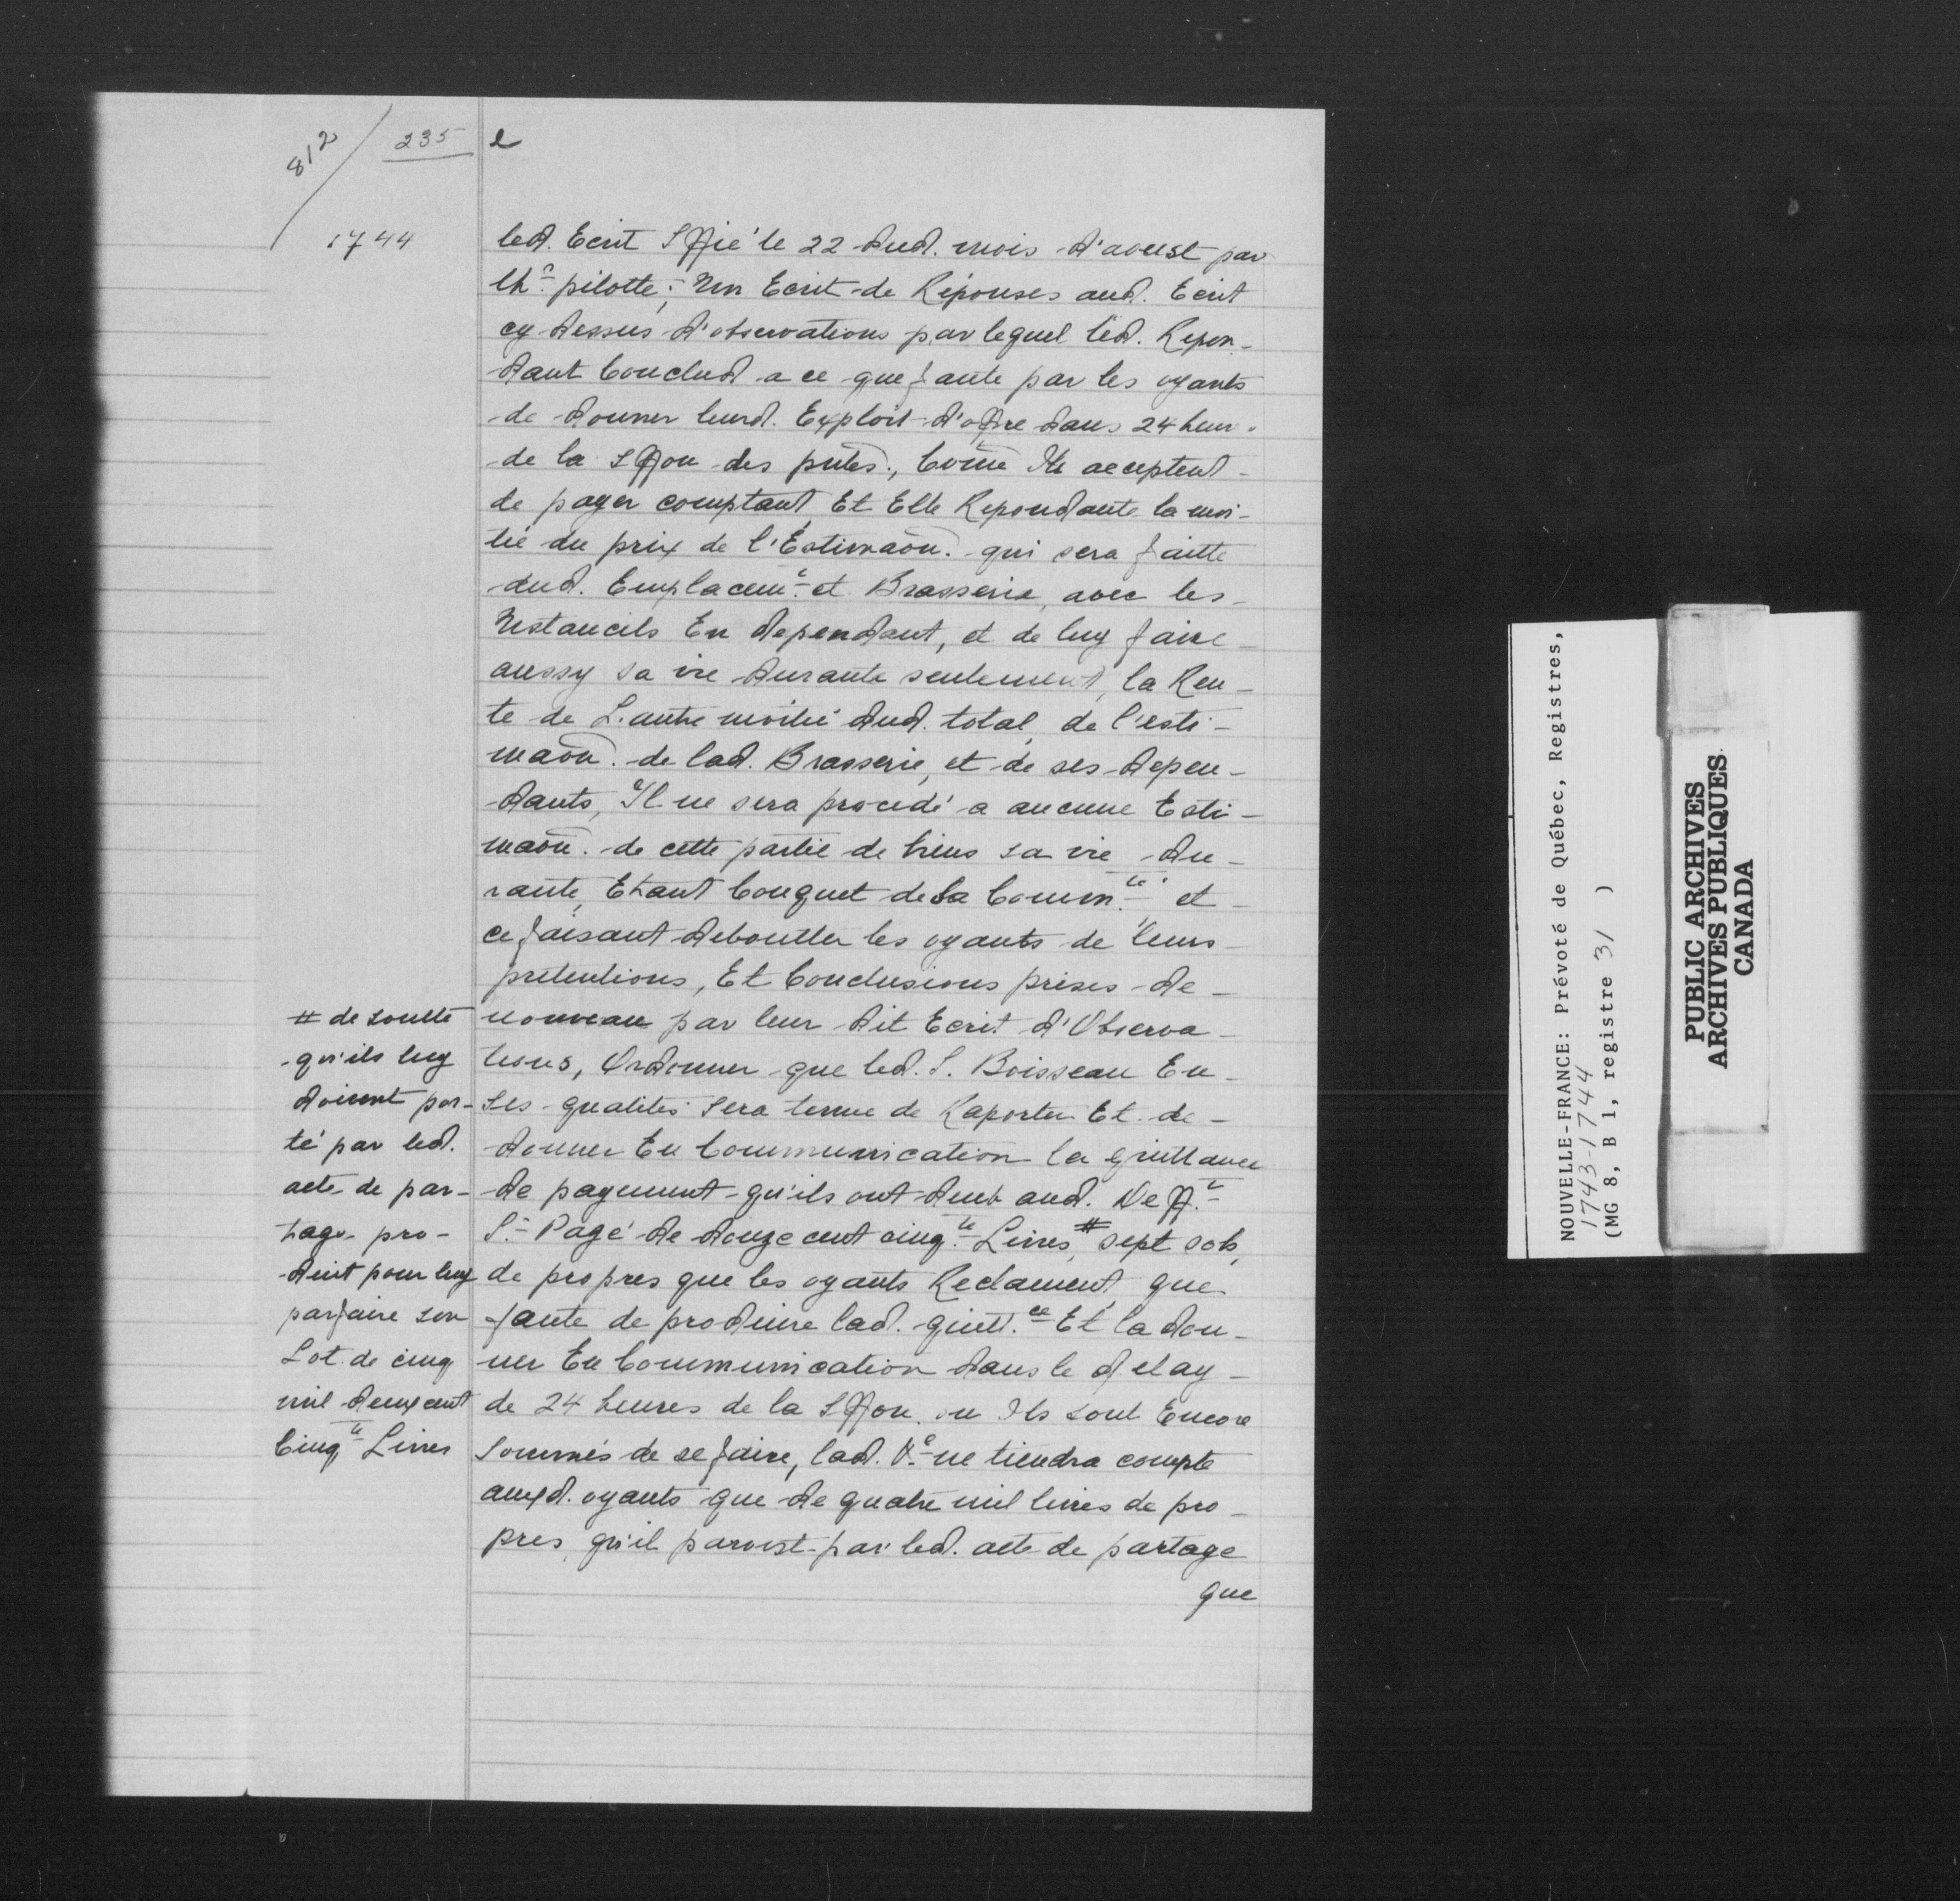 812 / 235 2
1744
led. Ecrit Sffié le 22 dud. mois d'aoust par
Ch.ˢ pilotte; Un Ecrit de Réponses aud. Ecrit
cy dessus d'observations par lequel led. Repon-
dant Conclud a ce que faute par les oyants
de donner leurd. Exploit d'offre dans 24 heur.
de la Sffon des pntes., Come Ils acceptent
de payer comptant Et Elle Repondante la moi-
tié du prix de l'Estimaôn. qui sera faitte
dud. Emplacem.ᵗ et Brasserie, avec les
Ustancils En dependant, et de luy faire
aussy sa vie durante seulement, la Ren-
te de L'autre moitié dud. total, de l'esti-
maôn. de lad. Brasserie, et de ses depen-
dants, Il ne sera procedé a aucune Esti-
maôn. de cette partie de biens sa vie du-
rante, Etant Conquet de la Comm.ᵗᵉ et
ce faisant deboutter les oyants de leurs
pretentions, Et Conclusions prises de
nouveau par leur dit Ecrit d'Observa-
tions, Ordonner que led. S. Boisseau En
ses qualités sera tenue de Raporter Et de
donner En Communication la quittance
de payement qu'ils ont aud. Deff.ᵗ
S.ʳ Pagé de douze cent cinq.ᵗᵉ Livres, # sept sols,
de propres que les oyants Reclament, que
faute de produire lad. quitt.ᶜᵉ Et la don-
ner En Communication dans le delay
de 24 heures de la Sffon. ou Ils sont Encore
Sommés de se faire, lad. V.ᵉ ne tiendra compte
auxd. oyants que de quatre mil livres de pro-
pres, qu'il paroist par led. acte de partage
que
# de soulte
qu'ils luy
doivent por-
té par led.
acte de par-
tage pro-
duit pour luy
parfaire son
Lot de cinq
mil deux cent
Cinq.ᵗᵉ Livres
NOUVELLE-FRANCE: Prévôté de Québec, Registres,
1743-1744
(MG 8, B 1, registre 31 )
PUBLIC ARCHIVES
ARCHIVES PUBLIQUES
CANADA